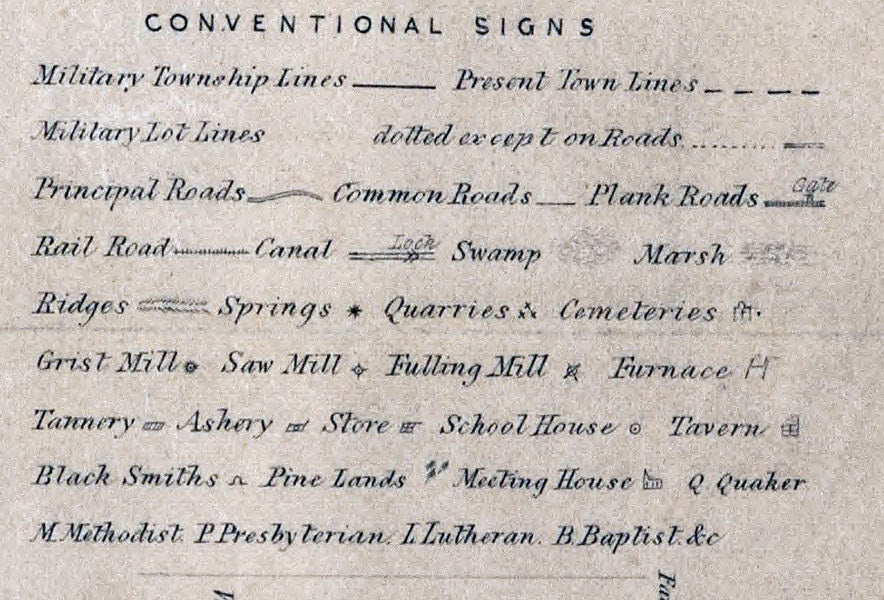 CONVENTIONAL SIGNS
Military Township Lines Present Town Lines
Military Lot Lines dotted except on Roads
Principal Roads Common Roads Plank Roads Gate
Rail Road Canal Lock Swamp Marsh
Ridges Springs Quarries Cemeteries
Grist Mill Saw Mill Fulling Mill Furnace
Tannery Ashery Store School House Tavern
Black Smiths Pine Lands Meeting House Q Quaker
M. Methodist. P. Presbyterian. L Lutheran. B. Baptist. &c